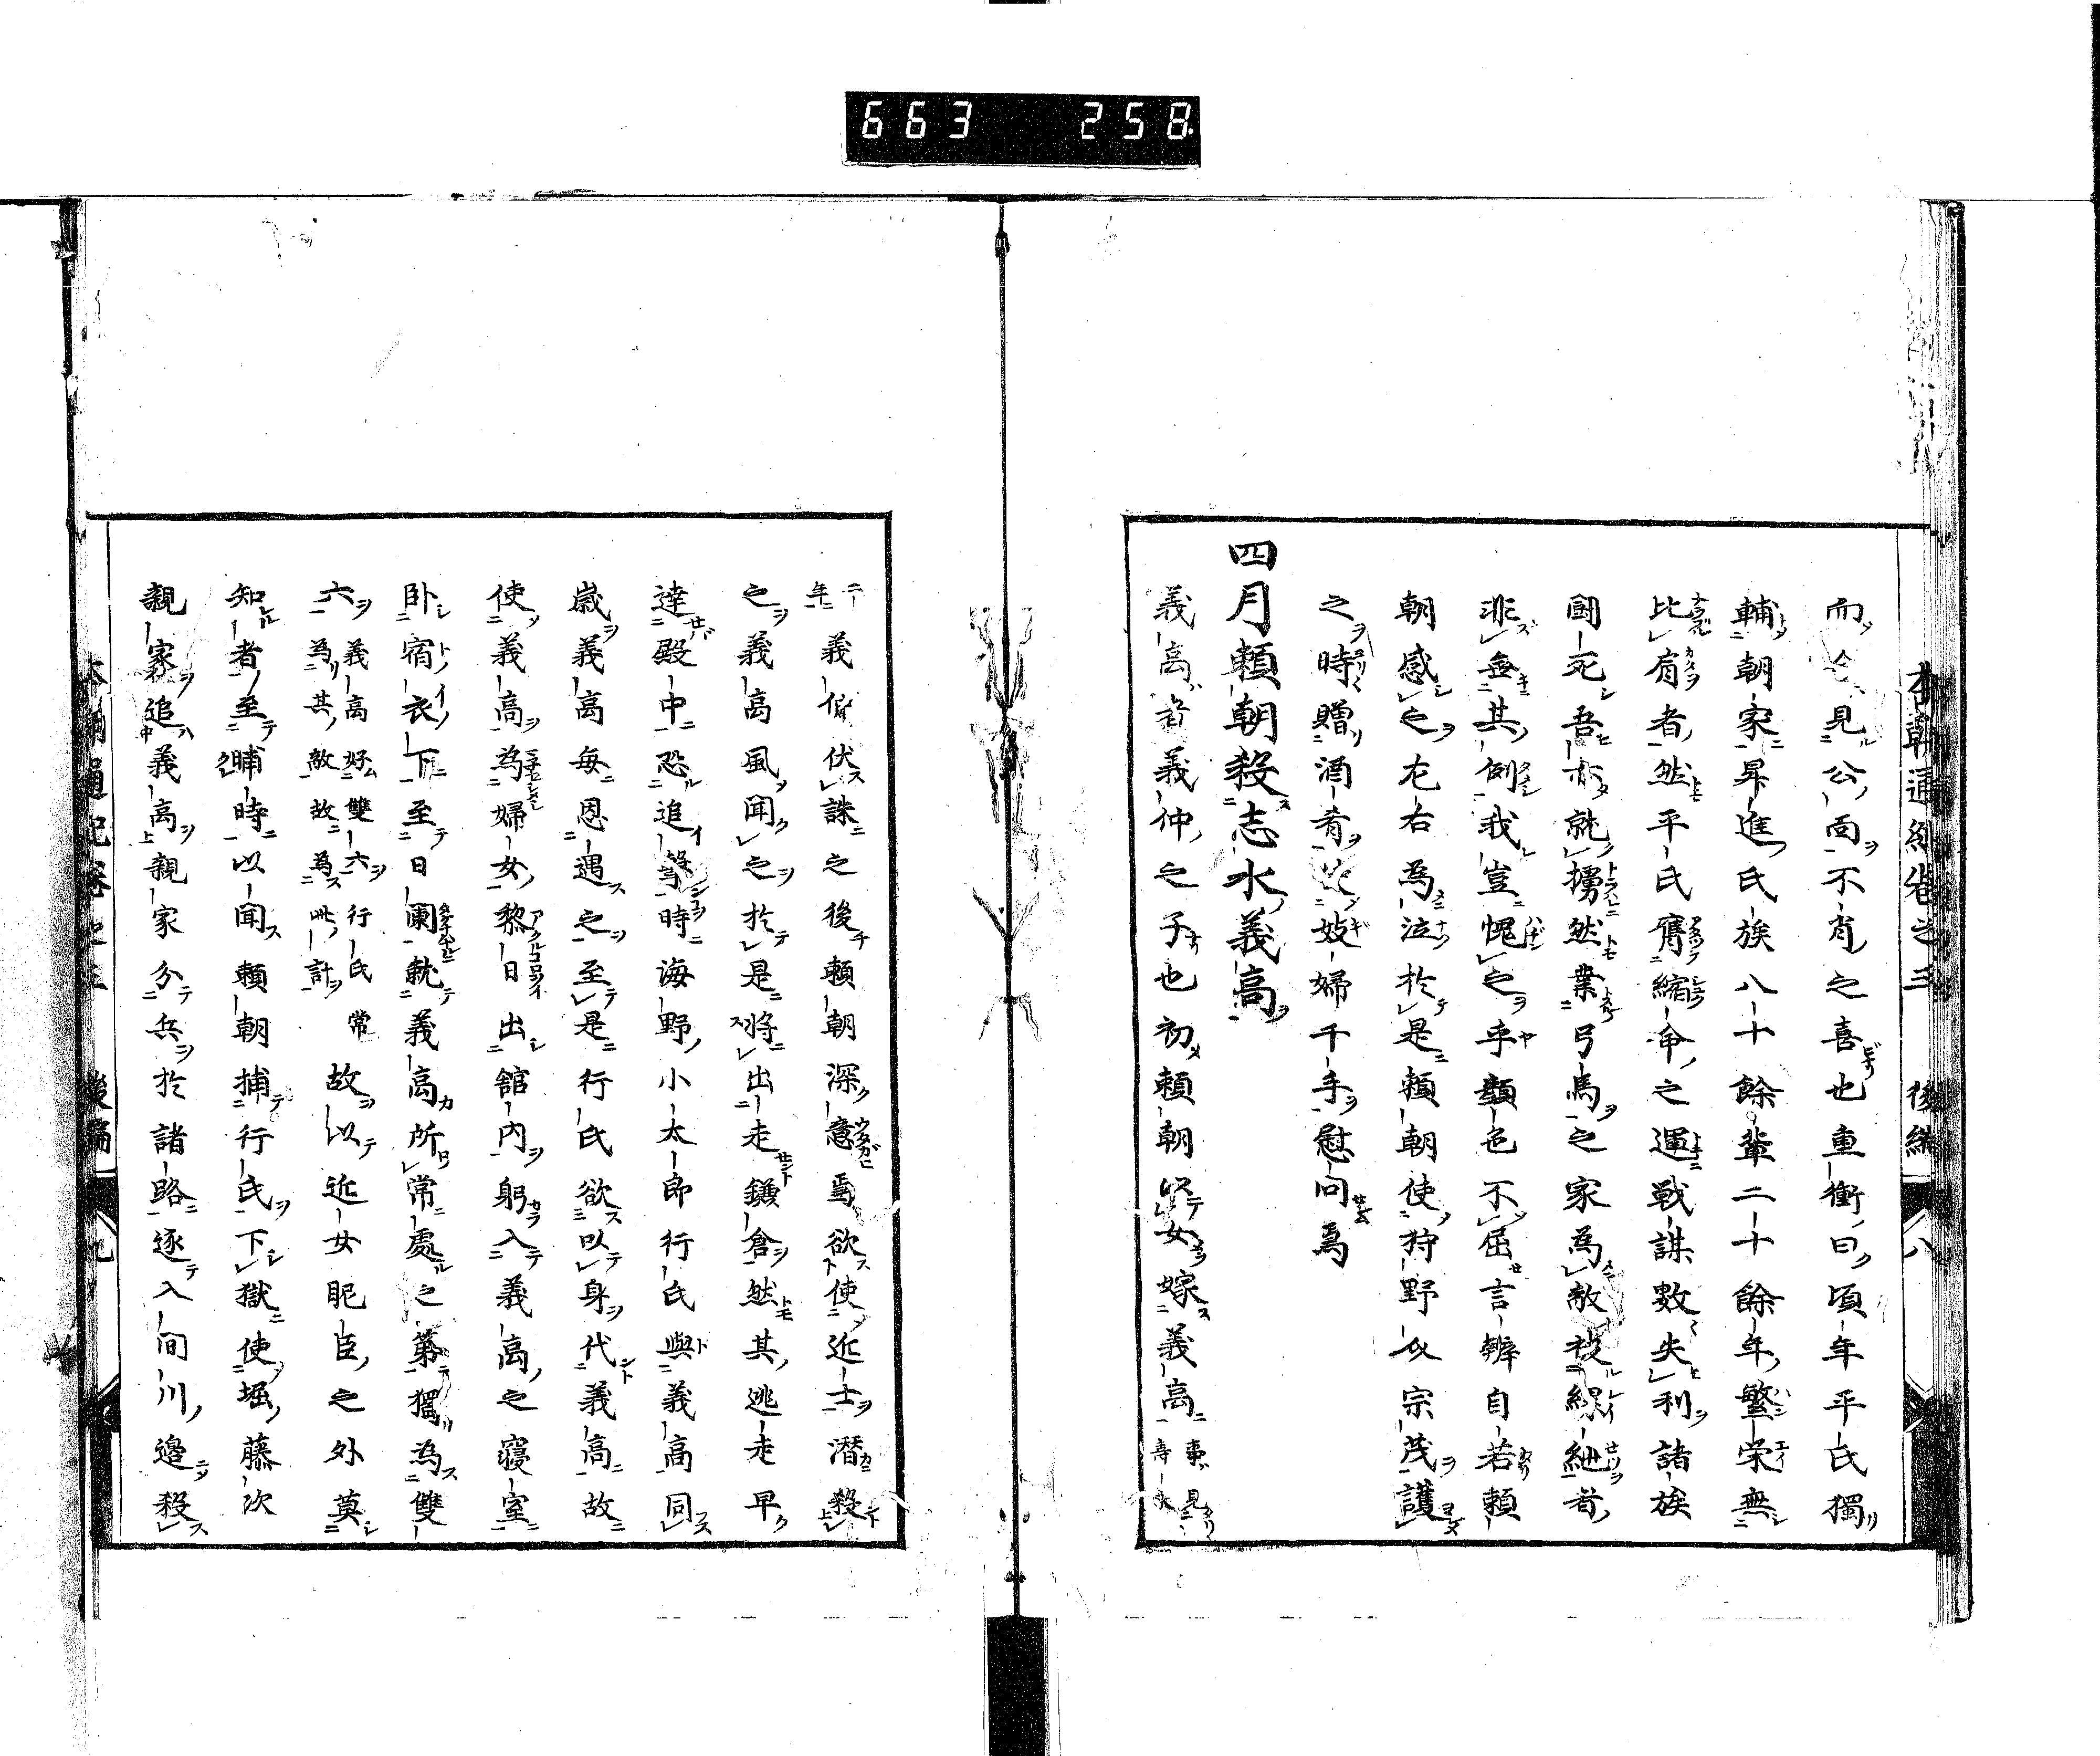 663 258
本朝通紀卷之三 後編 八
而今見公面不肖之喜也重衝曰頃年平氏獨
輔朝家昇進氏族八十餘輩二十餘年繁榮無
比肩者然平氏膺縮命之運戰謀數失利諸族
國死吾亦就擄然業弓馬之家為敵被縲紲者
非無其例我豈愧之乎顏色不屈言辨自若賴
朝感之左右為泣於是賴朝使狩野介宗茂護
之時贈酒肴以妓婦千手慰問焉
四月賴朝殺志水義高
義高者義仲之子也初賴朝以女嫁義高事見壽永
二年義仲伏誅之後賴朝深意焉欲使近士潜殺
之義高風聞之於是將出走鎌倉然其逃走早
達殿中恐追等時海野小太郎行氏與義高同
歲義高每恩遇之至是行氏欲以身代義高故
使義高為婦女黎日出舘內躬入義高之寢室
臥宿衣下至日闌就義高所常處之第獨為雙
六義高好雙六行氏常為其敵故為此計故以近女昵臣之外莫
知者至晡時以聞賴朝捕行氏下獄使堀藤次
親家追義高親家分兵於諸路逐入間川邊殺
本朝通紀卷之三 後編 九